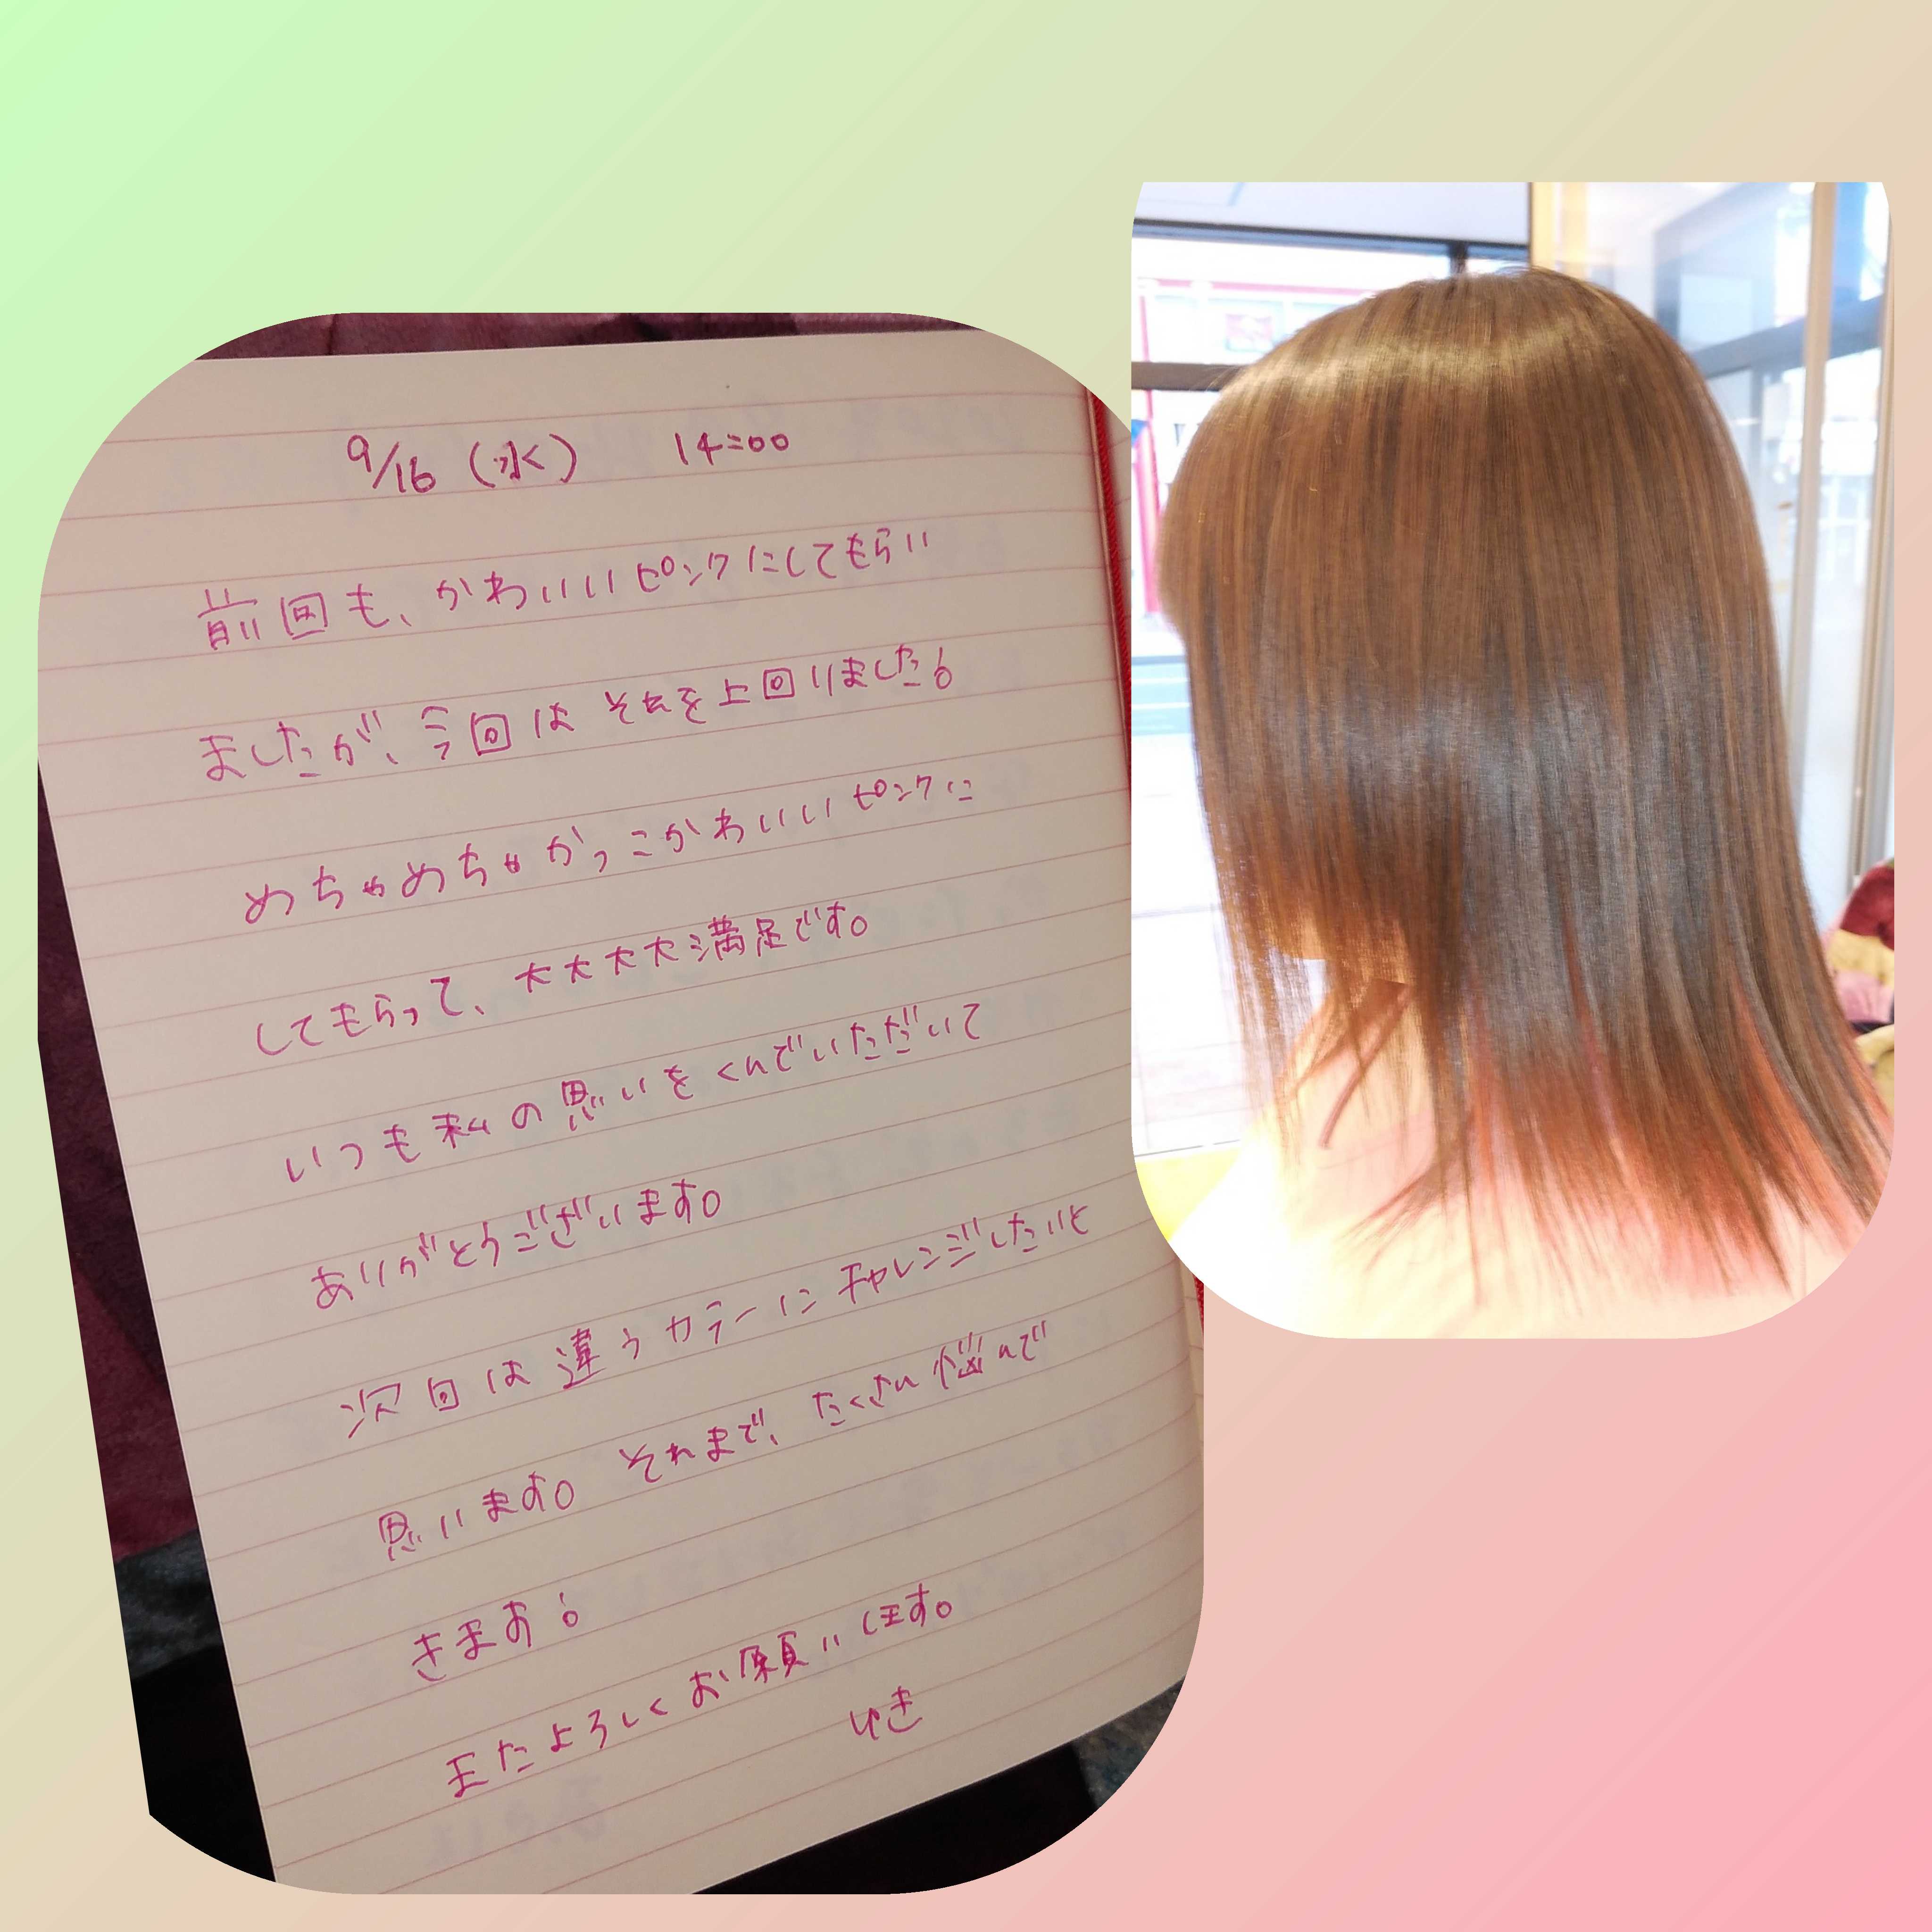 9/16 (水) 14:00
前回も、かわいいピンクにしてもらい
ましたが、今回はそれを上回りました!
めちゃめちゃかっこかわいいピンクに
してもらって、大大大大満足です。
いつも私の思いをくんでいただいて
ありがとうございます。
次回は違うカラーにチャレンジしたいと
思います。それまで、たくさん悩んで
きまぁす!
またよろしくお願いします。
ゆき